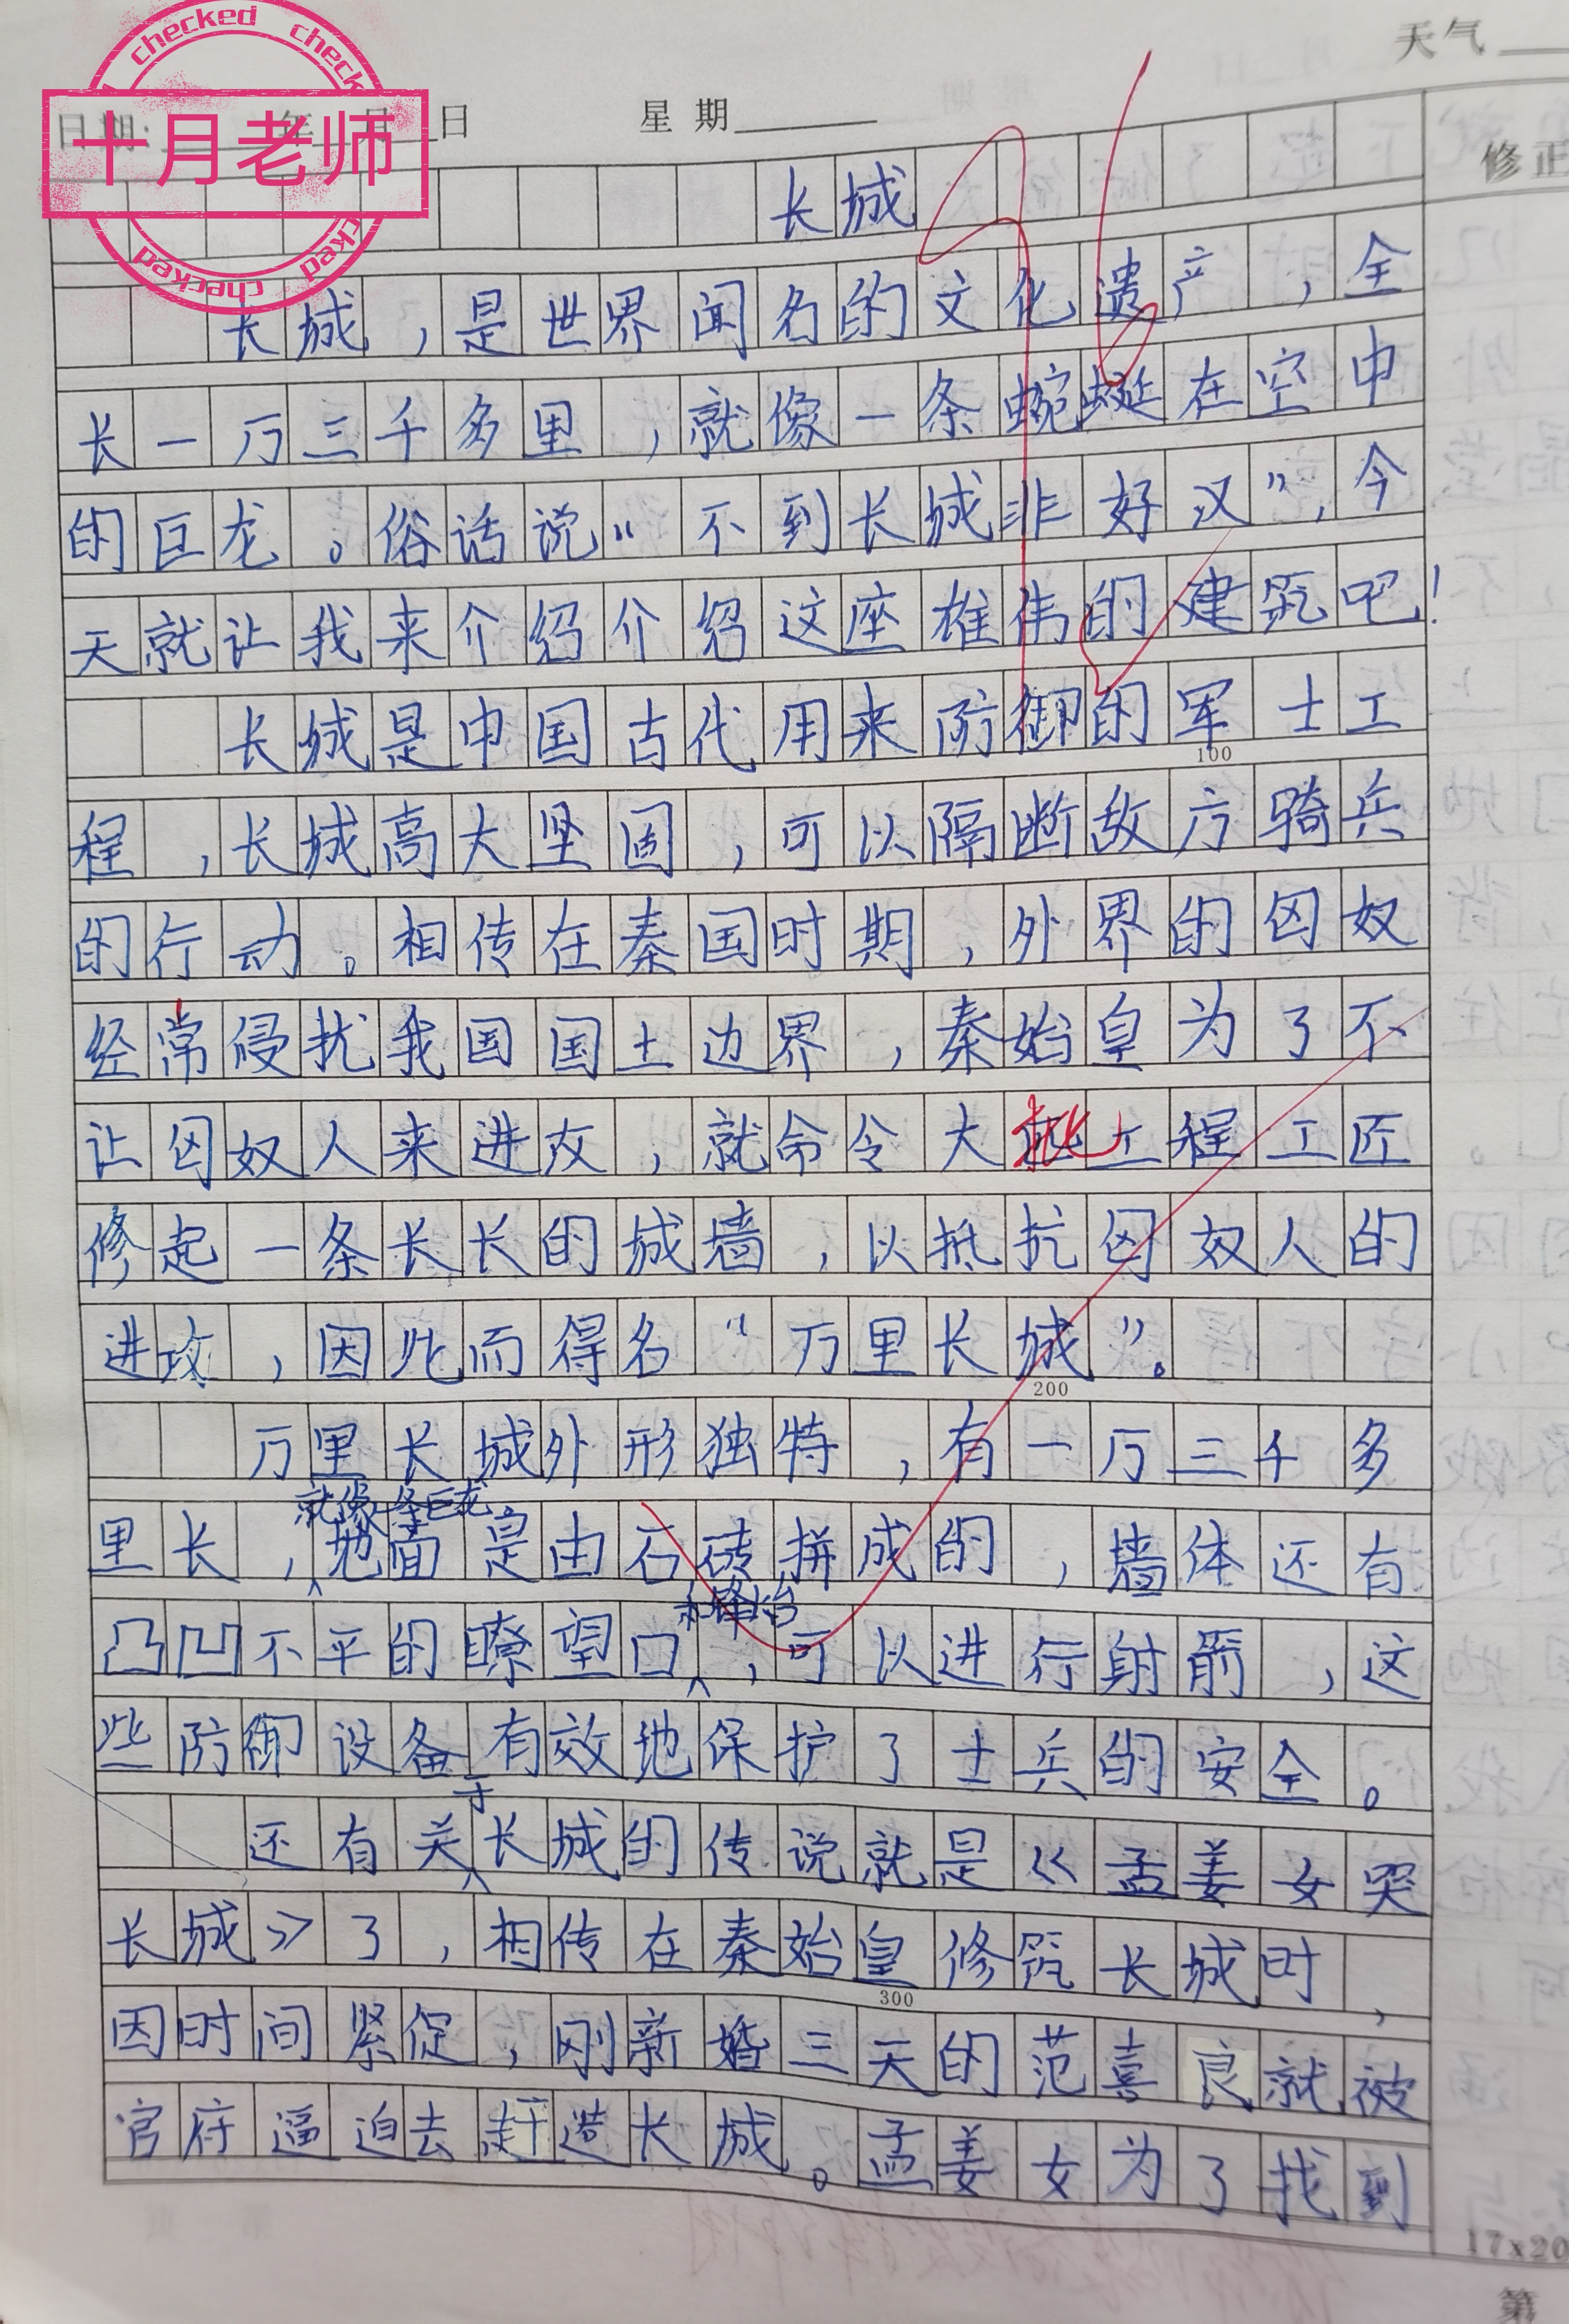 天气
checked checked
日期: 年 月 日 星期
十月老师
修正
长城
checked
长城，是世界闻名的文化遗产，全
长一万三千多里，就像一条蜿蜒在空中
的巨龙。俗话说“不到长城非好汉”，今
天就让我来介绍介绍这座雄伟的建筑吧！
长城是中国古代用来防御的军士工
100
程，长城高大坚固，可以隔断敌方骑兵
的行动。相传在秦国时期，外界的匈奴
经常侵扰我国国土边界，秦始皇为了不
让匈奴人来进攻，就命令大批工程工匠
修起一条长长的城墙，以抵抗匈奴人的
进攻，因此而得名“万里长城”。
200
万里长城外形独特，有一万三千多
就像一条巨龙
里长，地面是由石砖拼成的，墙体还有
和烽火台
凸凹不平的瞭望口，可以进行射箭，这
些防御设备有效地保护了士兵的安全。
于
还有关长城的传说就是《孟姜女哭
长城》了，相传在秦始皇修筑长城时，
300
因时间紧促，刚新婚三天的范喜良就被
官府逼迫去赶造长城。孟姜女为了找到
17x20
第